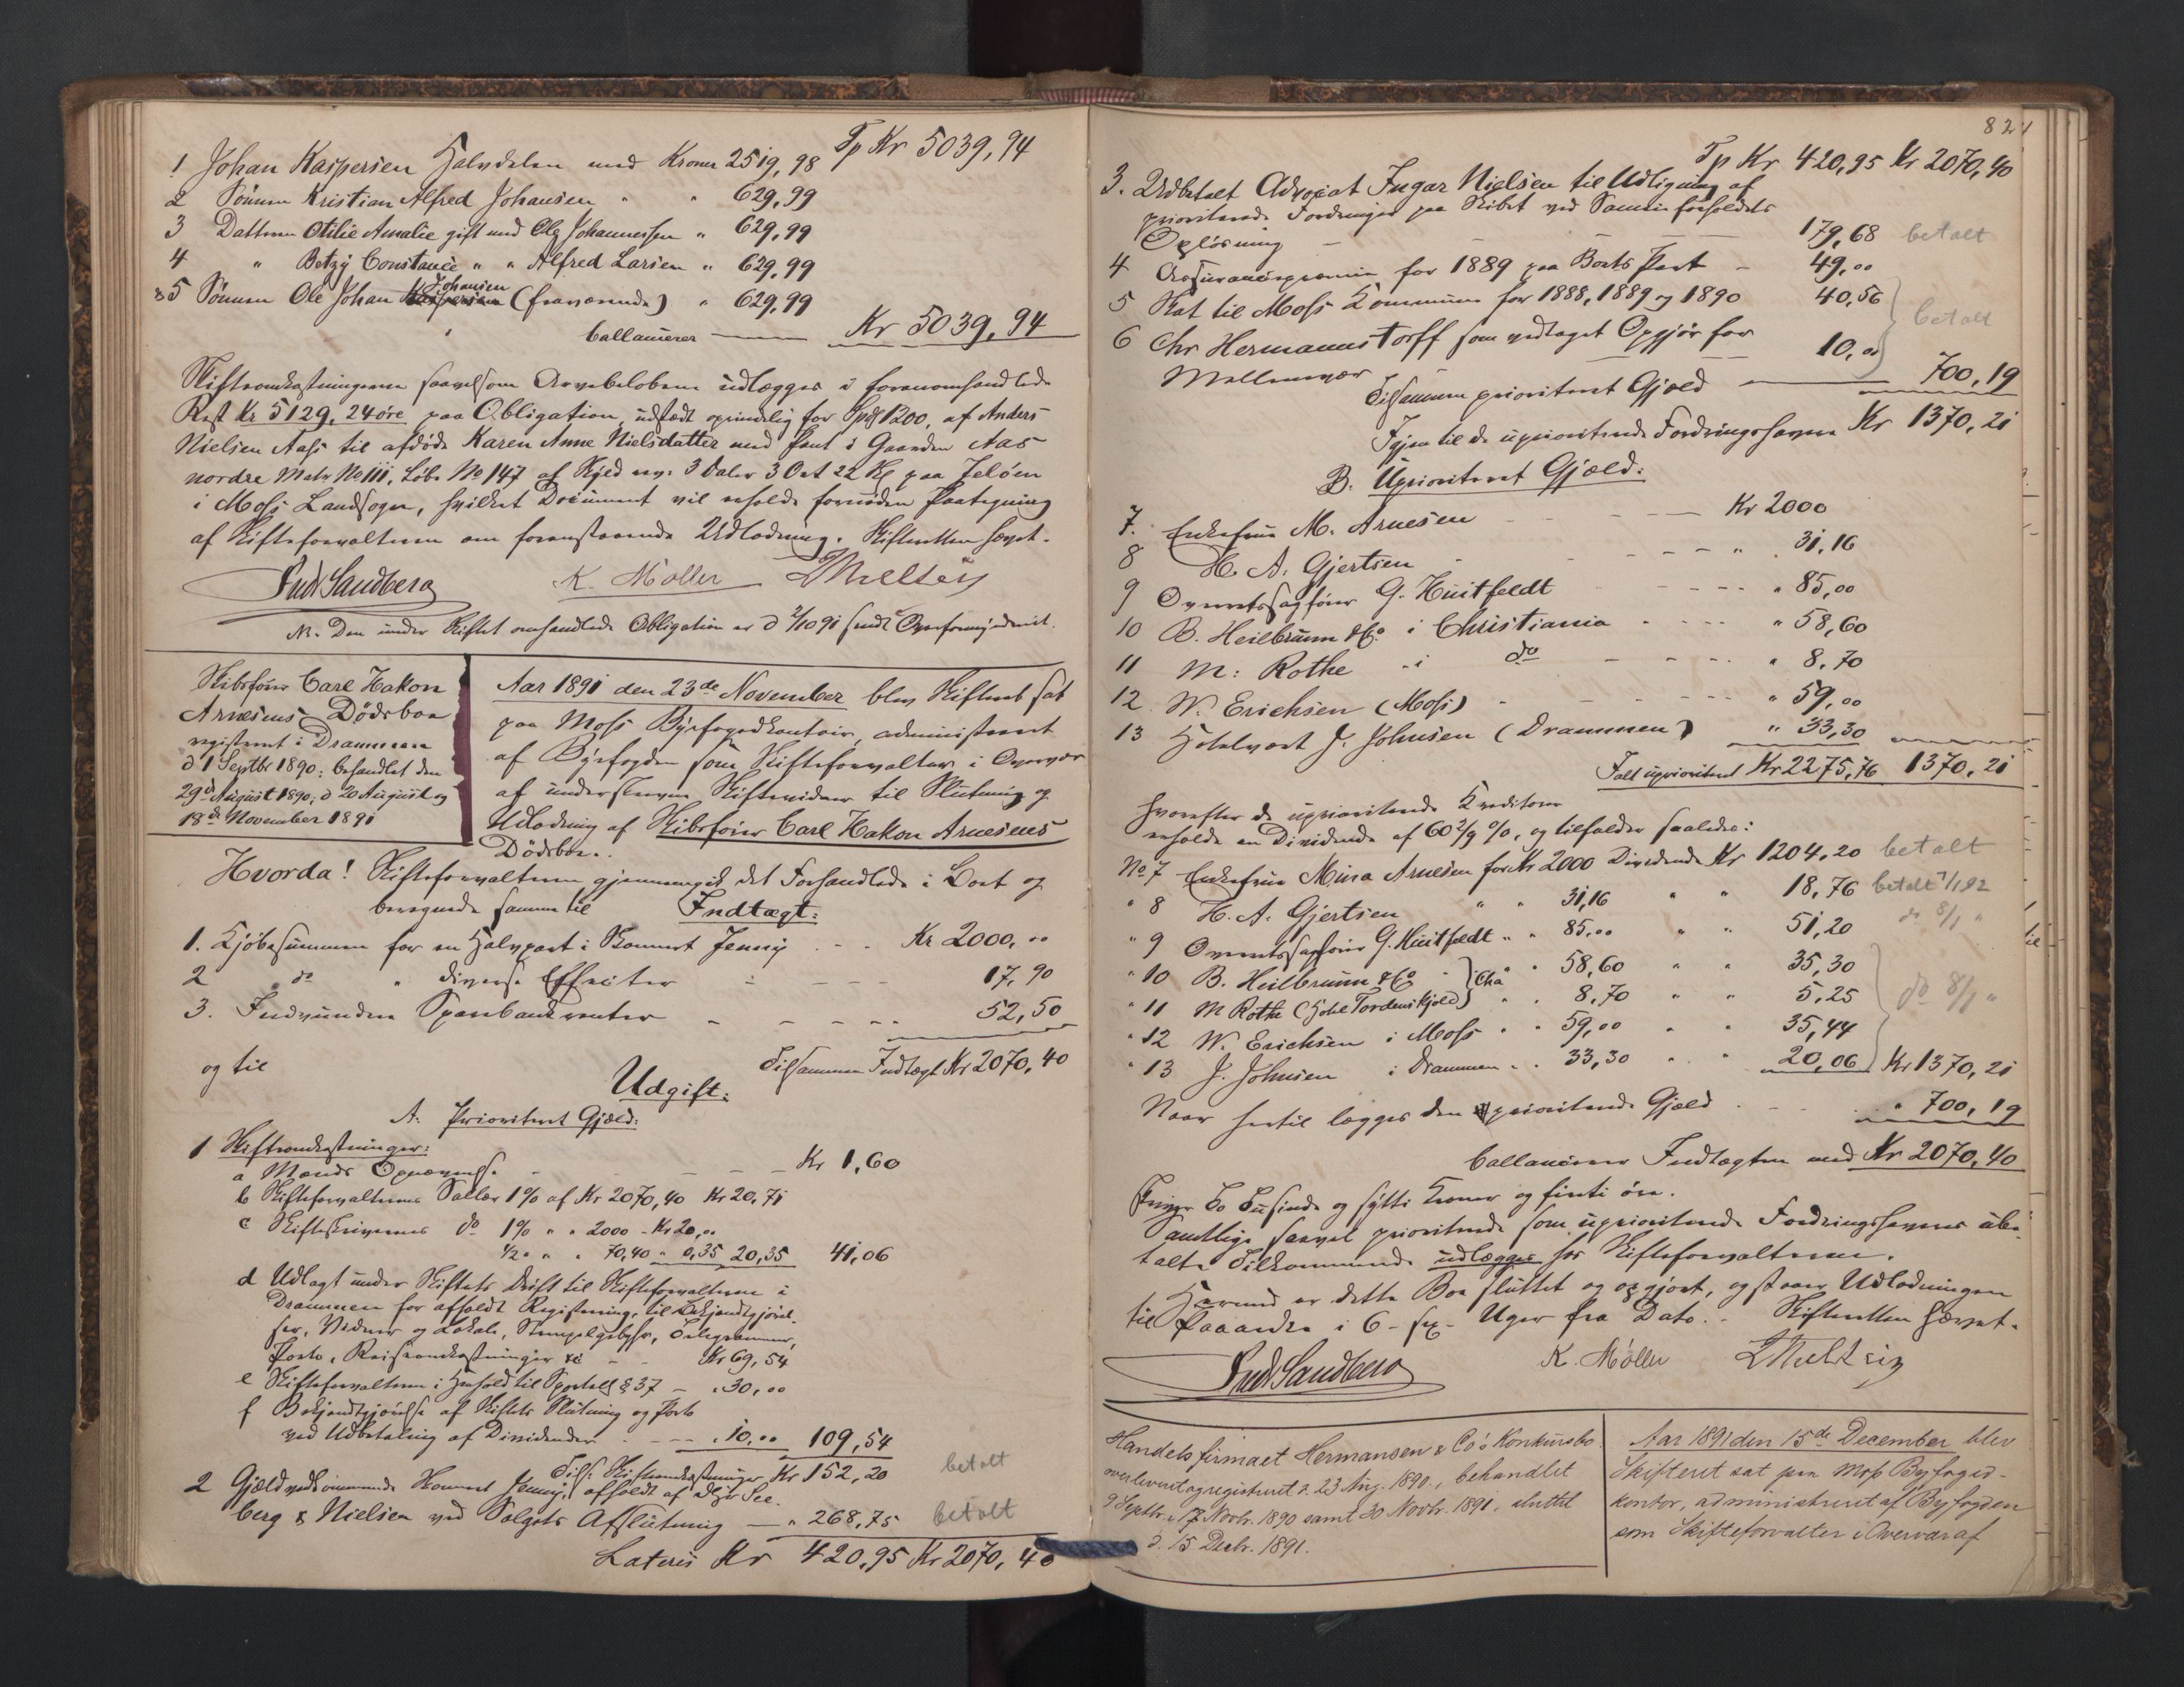 Tp Kr 5039,94
1 Johan Kaspersen Halvdelen med Kroner 2519,98
2 Sønnen Kristian Alfred Johansen " " 629,99
3 Datteren Otilie Amalie gift med Olg Johannessen " 629,99
4 " Betzy Constance " " Alfred Larsen " 629,99
5 Sønnen Ole Johan Kaspersen Johansen (fraværende) " 629,99
ballancerer Kr 5039,94
Skifteomkostningerne saavelsom Arvebeløbene udlægges i foranomhandlede
Rest Kr 5129,24 øre paa Obligation, udstædt oprindelig for Spd 1200, af Anders
Nielsen Aass til afdøde Karen Anne Nielsdatter med Pant i Gaarden Aas
nordre Matr No 111, Løbe No 147 af Skyld ny 3 Daler 3 Ort 22 Sk paa Jeløen
i Moss Landsogn, hvilket Document vil erholde fornøden Paategning
af Skifteforvalteren om foranstaaende Udlodning. Skifteretten hævet.
Fred Sandberg K. Møller
N. Den under Skiftet omhandlede Obligation er d 2/10 91 sendt Overformynderiet.
Skibsfører Carl Hakon
Arnesens Dødsboe
registreret i Drammen
d 1 Septbr 1890; behandlet den
29de August 1890, d 20 August og
18de November 1891
Aar 1891 den 23de November blev Skifteret sat
paa Moss Byfogedkontoir, administreret
af Byfogden som Skifteforvalter i Overvær
af underskrevne Skiftevidner til Slutning og
Udlodning af Skibsfører Carl Hakon Arnesens
Dødsboe.
Hvorda! Skifteforvalteren gjennemgik det Forhandlede i Boet og
beregnede samme til Indtægt:
1. Kjøbesummen for en Halvpart i Skonnert Jenny - - Kr 2000,00
2 do " diverse Effecter - - - 17,90
3. Indvundne Sparebankrenter - - - - 52,50
Tilsammen Indtægt Kr 2070,40
og til
Udgift:
A. Prioriteret Gjæld:
1 Skifteomkostninger:
a Mænds Opnævnelse - - - Kr 1,60
b Skifteforvalterens Sallær 1% af Kr 2070,40 Kr 20,71
c Skifteskriverens do 1% " " 2000 - Kr 20,00
1/2 " " " 70,40 " 0,35 20,35 41,06
d Udlagt under Skiftets Drift til Skifteforvalteren i
Drammen for afholdt Registrering, til Bekjendtgjørel-
ser, Vidner og Lokale, Stempelgebyhr, Telegrammer,
Porto, Reiseomkostninger &c - - Kr 69,54
e Skifteforvalteren i Henhold til Sportell § 37 - " 30,00
f Bekjendtgjørelse af Skiftets Slutning og Porto
ved Udbetaling af Dividender - - - " 10,00 109,54
Tils: Skifteomkostninger Kr 152,20 betalt
2 Gjæld vedkommende Skonnert Jenny, afholdt af dHr See-
berg & Nielsen ved Salgets Afslutning - " 268,75 betalt
Lateris Kr 420,95 Kr 2070,40
824
Tp Kr 420,95 Kr 2070,40
3. Udbetalt Advocat Ingar Nielsen til Udligning af
prioriterede Fordringer paa Skibet ved Sameieforholdets
Opløsning - - - 179,68 betalt
4 Assurancepremie for 1889 paa Boets Part - 49,00
5 Skat til Moss Kommune for 1888, 1889 og 1890 40,56
betalt
6 Chr Hermanustorff som vedtaget Opgjør for
Mellemvær - 10,00
Tilsammen prioriteret Gjæld 700,19
Igjen til de uprioriterede Fordringshavere Kr 1370,21
B. Uprioriteret Gjæld:
7. Enkefrue M. Arnesen - - - Kr 2000
8 H. A. Gjertsen - - - " 31,16
9 Overretssagfører G. Huitfeldt - - - " 85,00
10 B. Heilbrunn & Co. i Christiania - - - " 58,60
11 M. Rothe - i do - - - " 8,70
12 W. Erichsen (Moss) - - - " 59,00
13 Hotelvært J. Johnsen (Drammen) " 33,30
Ialt uprioriteret Kr 2275,76 1370,21
hvorefter de uprioriterede Kreditorer
erholde en Dividende af 60 2/9 %, og tilfalder saaledes:
No 7 Enkefrue Mina Arnesen for Kr 2000 Dividende Kr 1204,20 betalt
" 8 H. A. Gjertsen " " 31,16 " " 18,76 betalt 7/1 92
" 9 Overretssagfører G. Huitfeldt " " 85,00 " " 51,20 do 8/1 "
" 10 B. Heilbrunn & Co " } i Chra " 58,60 " " 35,30
" 11 M Rothe (Hotel Tordenskjold) " " 8,70 " " 5,25 do 8/1 "
" 12 W. Erichsen i Moss " " 59,00 " " 35,44
" 13 J. Johnsen i Drammen " " 33,30 " " 20,06 Kr 1370,21
Naar hertil lægges den prioriterede Gjæld - - - " 700,19
ballancerer Indtægten med Kr 2070,40
Skriver To Tusinde og sytti Kroner og firti øre.
Samtlige saavel prioriterede som uprioriterede Fordringshaveres ube-
talte Tilkommende udlægges hos Skifteforvalteren.
Hermed er dette Boe sluttet og opgjort, og staaer Udlodningen
til Paaanke i 6 - sex - Uger fra Dato. - Skifteretten hævet.
Fred Sandberg K. Møller
Handelsfirmaet Hermansen & Co's Konkursbo
overleveret og registreret d. 23 Aug. 1890, behandlet
9 Septbr., 17 Novbr. 1890 samt 30 Novbr. 1891, sluttet
d. 15 Decbr. 1891.
Aar 1891 den 15de December blev
Skifteret sat paa Moss Byfoged-
kontor, administreret af Byfogden
som Skifteforvalter i Overvær af